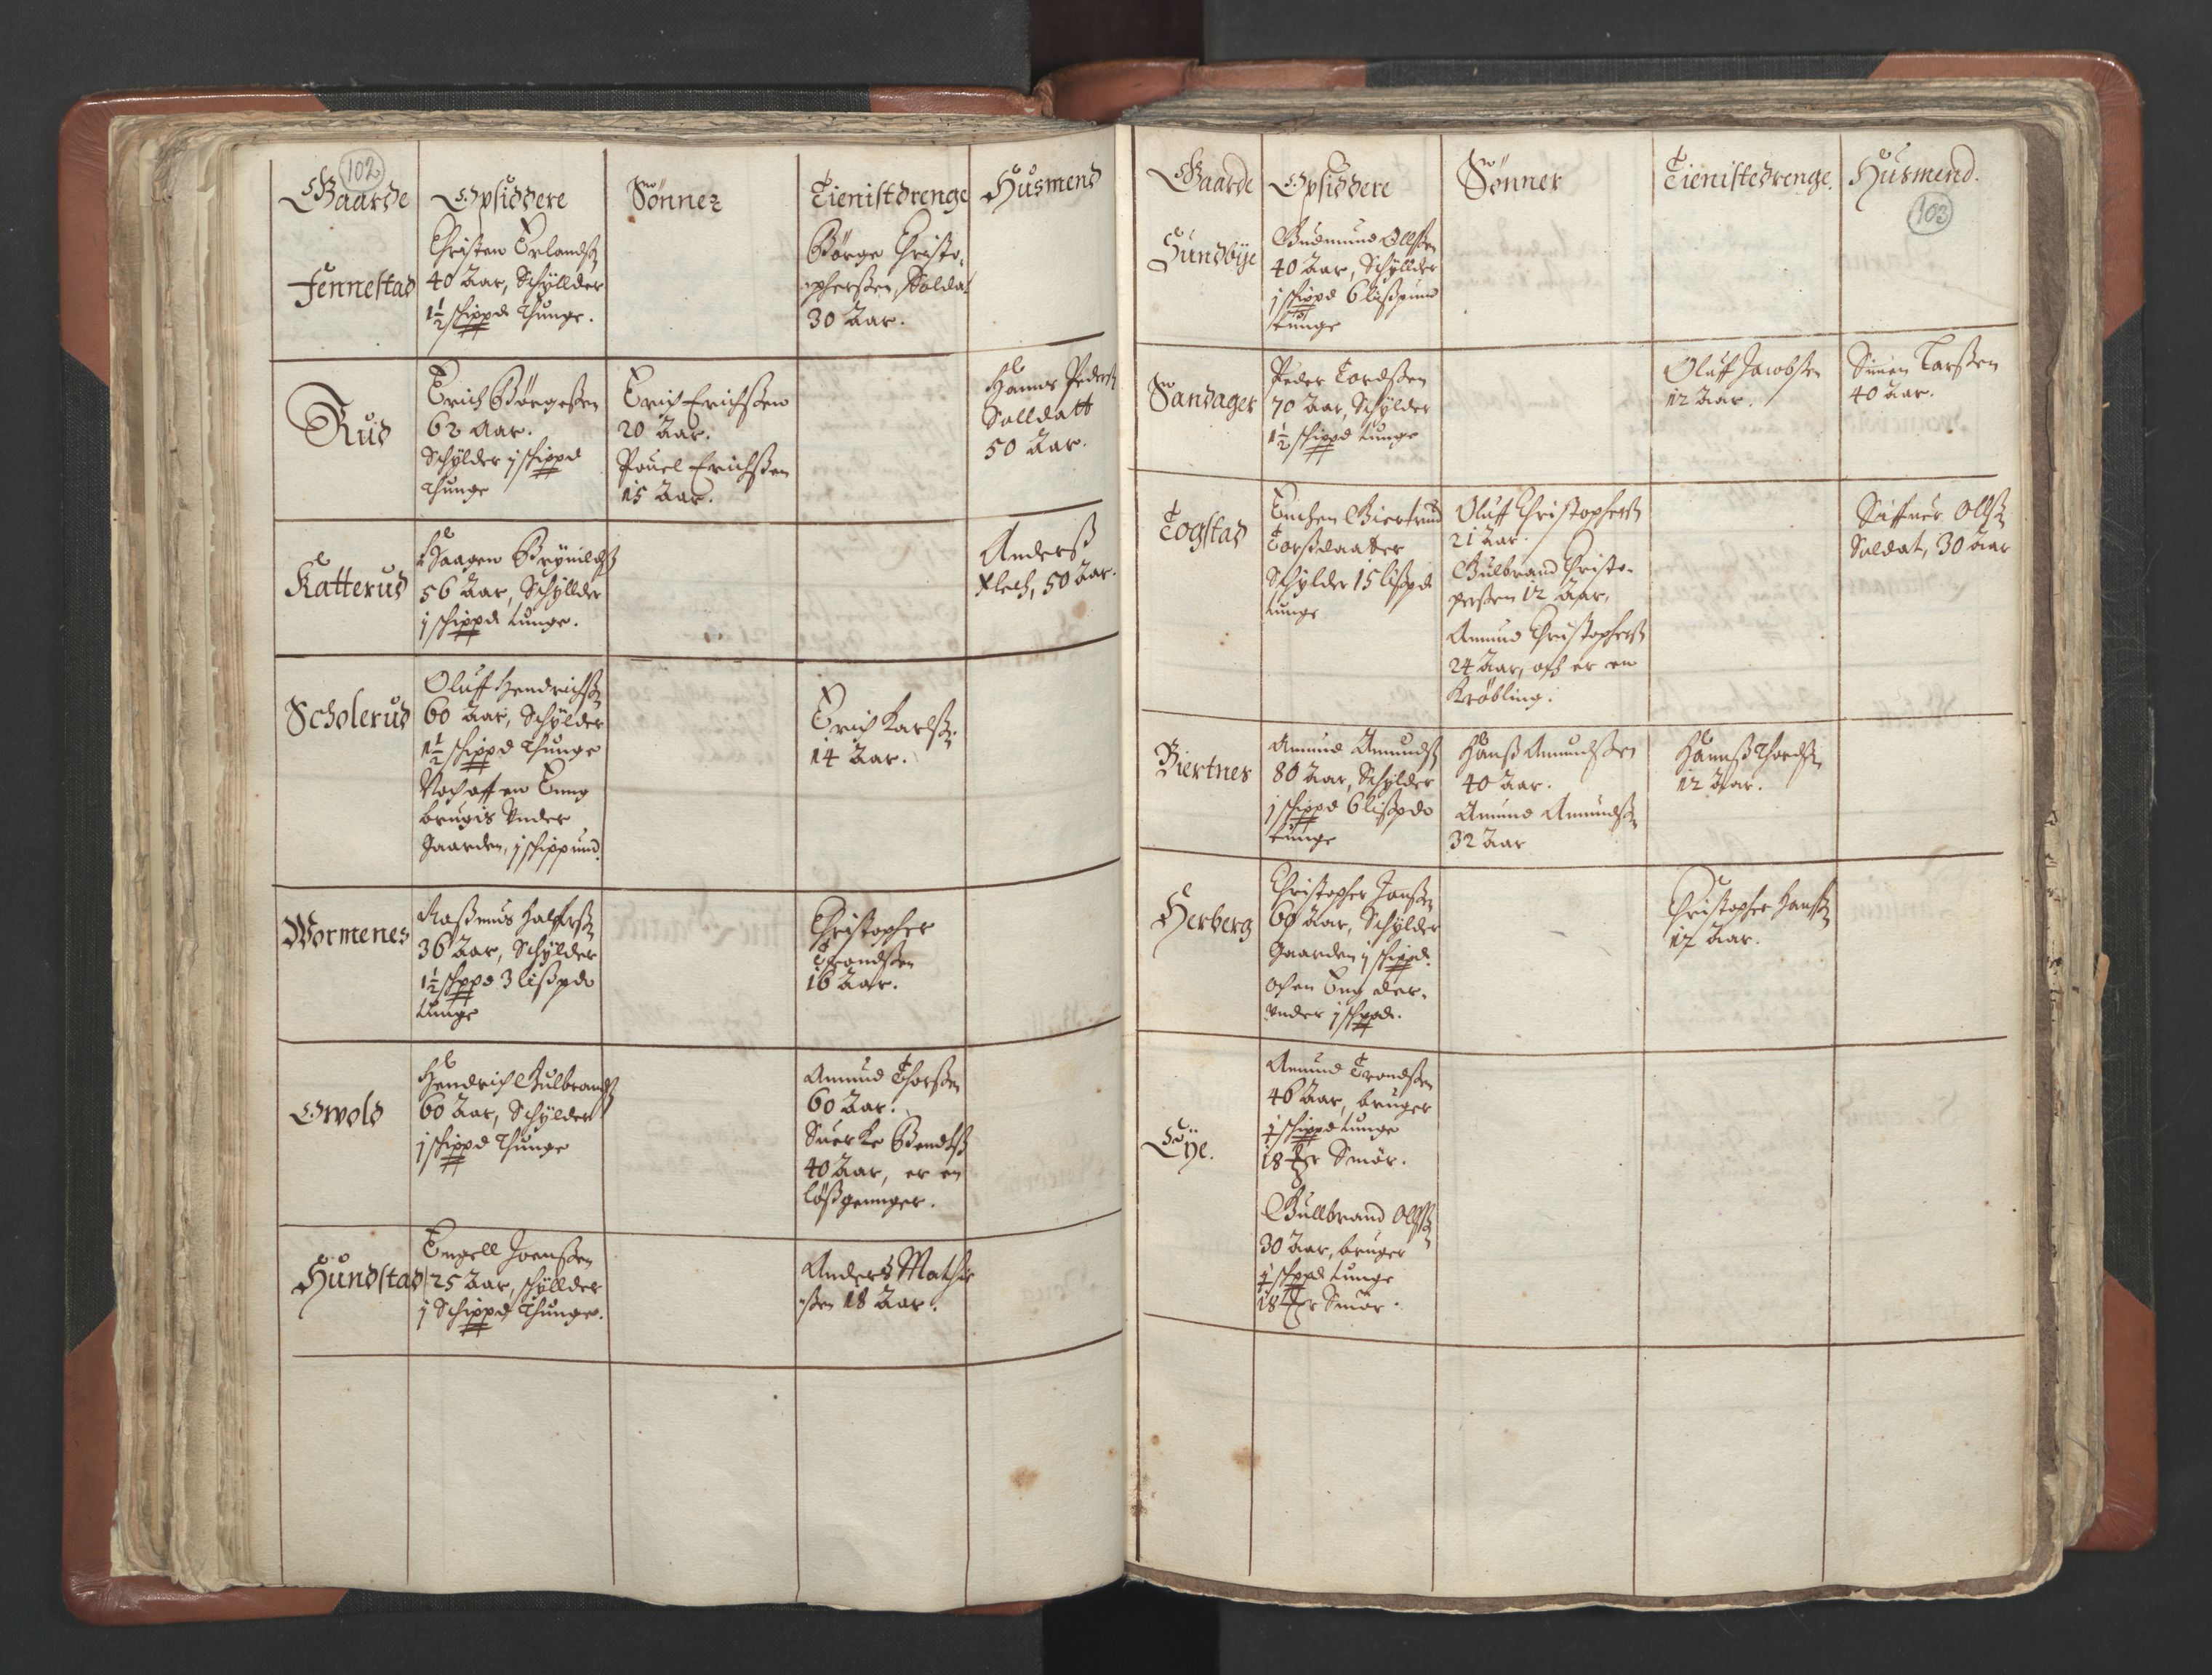 102
Gaarde Opsiddere Sønner Tienistdrenge Husmend
Fennestad
Christen Erlandsß
40 Aar, Schyllder
1½ schippd Thunge.
Børge Christo-
-phersßen, Solda[t]
30 Aar.
Rud
Erich Børgesßen
62 Aar.
Schylder j schippd
Thunge
Erich Erichsßen
20 Aar.
Pouel Erichsßen
15 Aar.
Hanns Pedersß
Solldatt
50 Aar.
Katterud
Haagen Brynildsß
56 Aar, Schyllder
j schippd tunge.
Anderß
Flech, 50 Aar.
Scholerud
Oluff Hendrichsß
60 Aar, Schylder
1½ schippd Thunge
Noch aff en Enng
brugis Vnder
Gaarden, j schippund.
Erich Karlsß.
14 Aar.
Wormenes
Raßmus Halffrsß
36 Aar, Schylder
1½ schppd 3 lißpdo
tunge
Christopher
Trondsßen
16 Aar.
Owold
Hendrich Gulbrandsß
60 Aar, Schylder
j schippd Thunge
Amund Thorsßen
60 Aar.
Suerke Bendtsß
40 Aar, er en
lößgennger.
Hundstad
Engell Joensßen
25 Aar, schyllder
j Schippd Thunge.
Anders Mathis
-sßen 18 Aar.
Gaarde Opsiddere Sønner Tienistedrenge. Husmend.
103
Sundbye
Gudmund Ollsßen
40 Aar, Schyllder
j schippd 6 lißpund
tunge
Sandager
Peder Tordsßen
70 Aar, Schylder
1½ schippd tunge
Oluff Jacobsßen
12 Aar.
Simen Larsßen
40 Aar.
Togstad
Enchen Giertrud
Torßdaatter
Schylder 15 lißpd
tunge
Oluff Christophersß
21 Aar.
Gulbrand Christo-
persßen 12 Aar,
Amund Christophersß
24 Aar, och er en
Krøbling.
Siffuer Ollsß
Soldat, 30 Aar
Biertnes
Amund Amundsß
80 Aar, Schylder
j schippd 6 lißpdo
tunge
Hanß Amundsßen
40 Aar.
Amund Amundsß
32 Aar
Hannß Thordsß
12 Aar.
Herberg
Christopher Jonsßen
60 Aar, Schylder
Gaarden j schippd.
Och en Eng der-
vnder j schppd.
Christopher Hansß
17 Aar.
Eye.
Amund Trondsßen
46 Aar, bruger
½ schippd tunge
18 mkr Smør.
Gullbrand Ollsß
30 Aar, bruger
½ schppd tunge
18 mkr Smør.